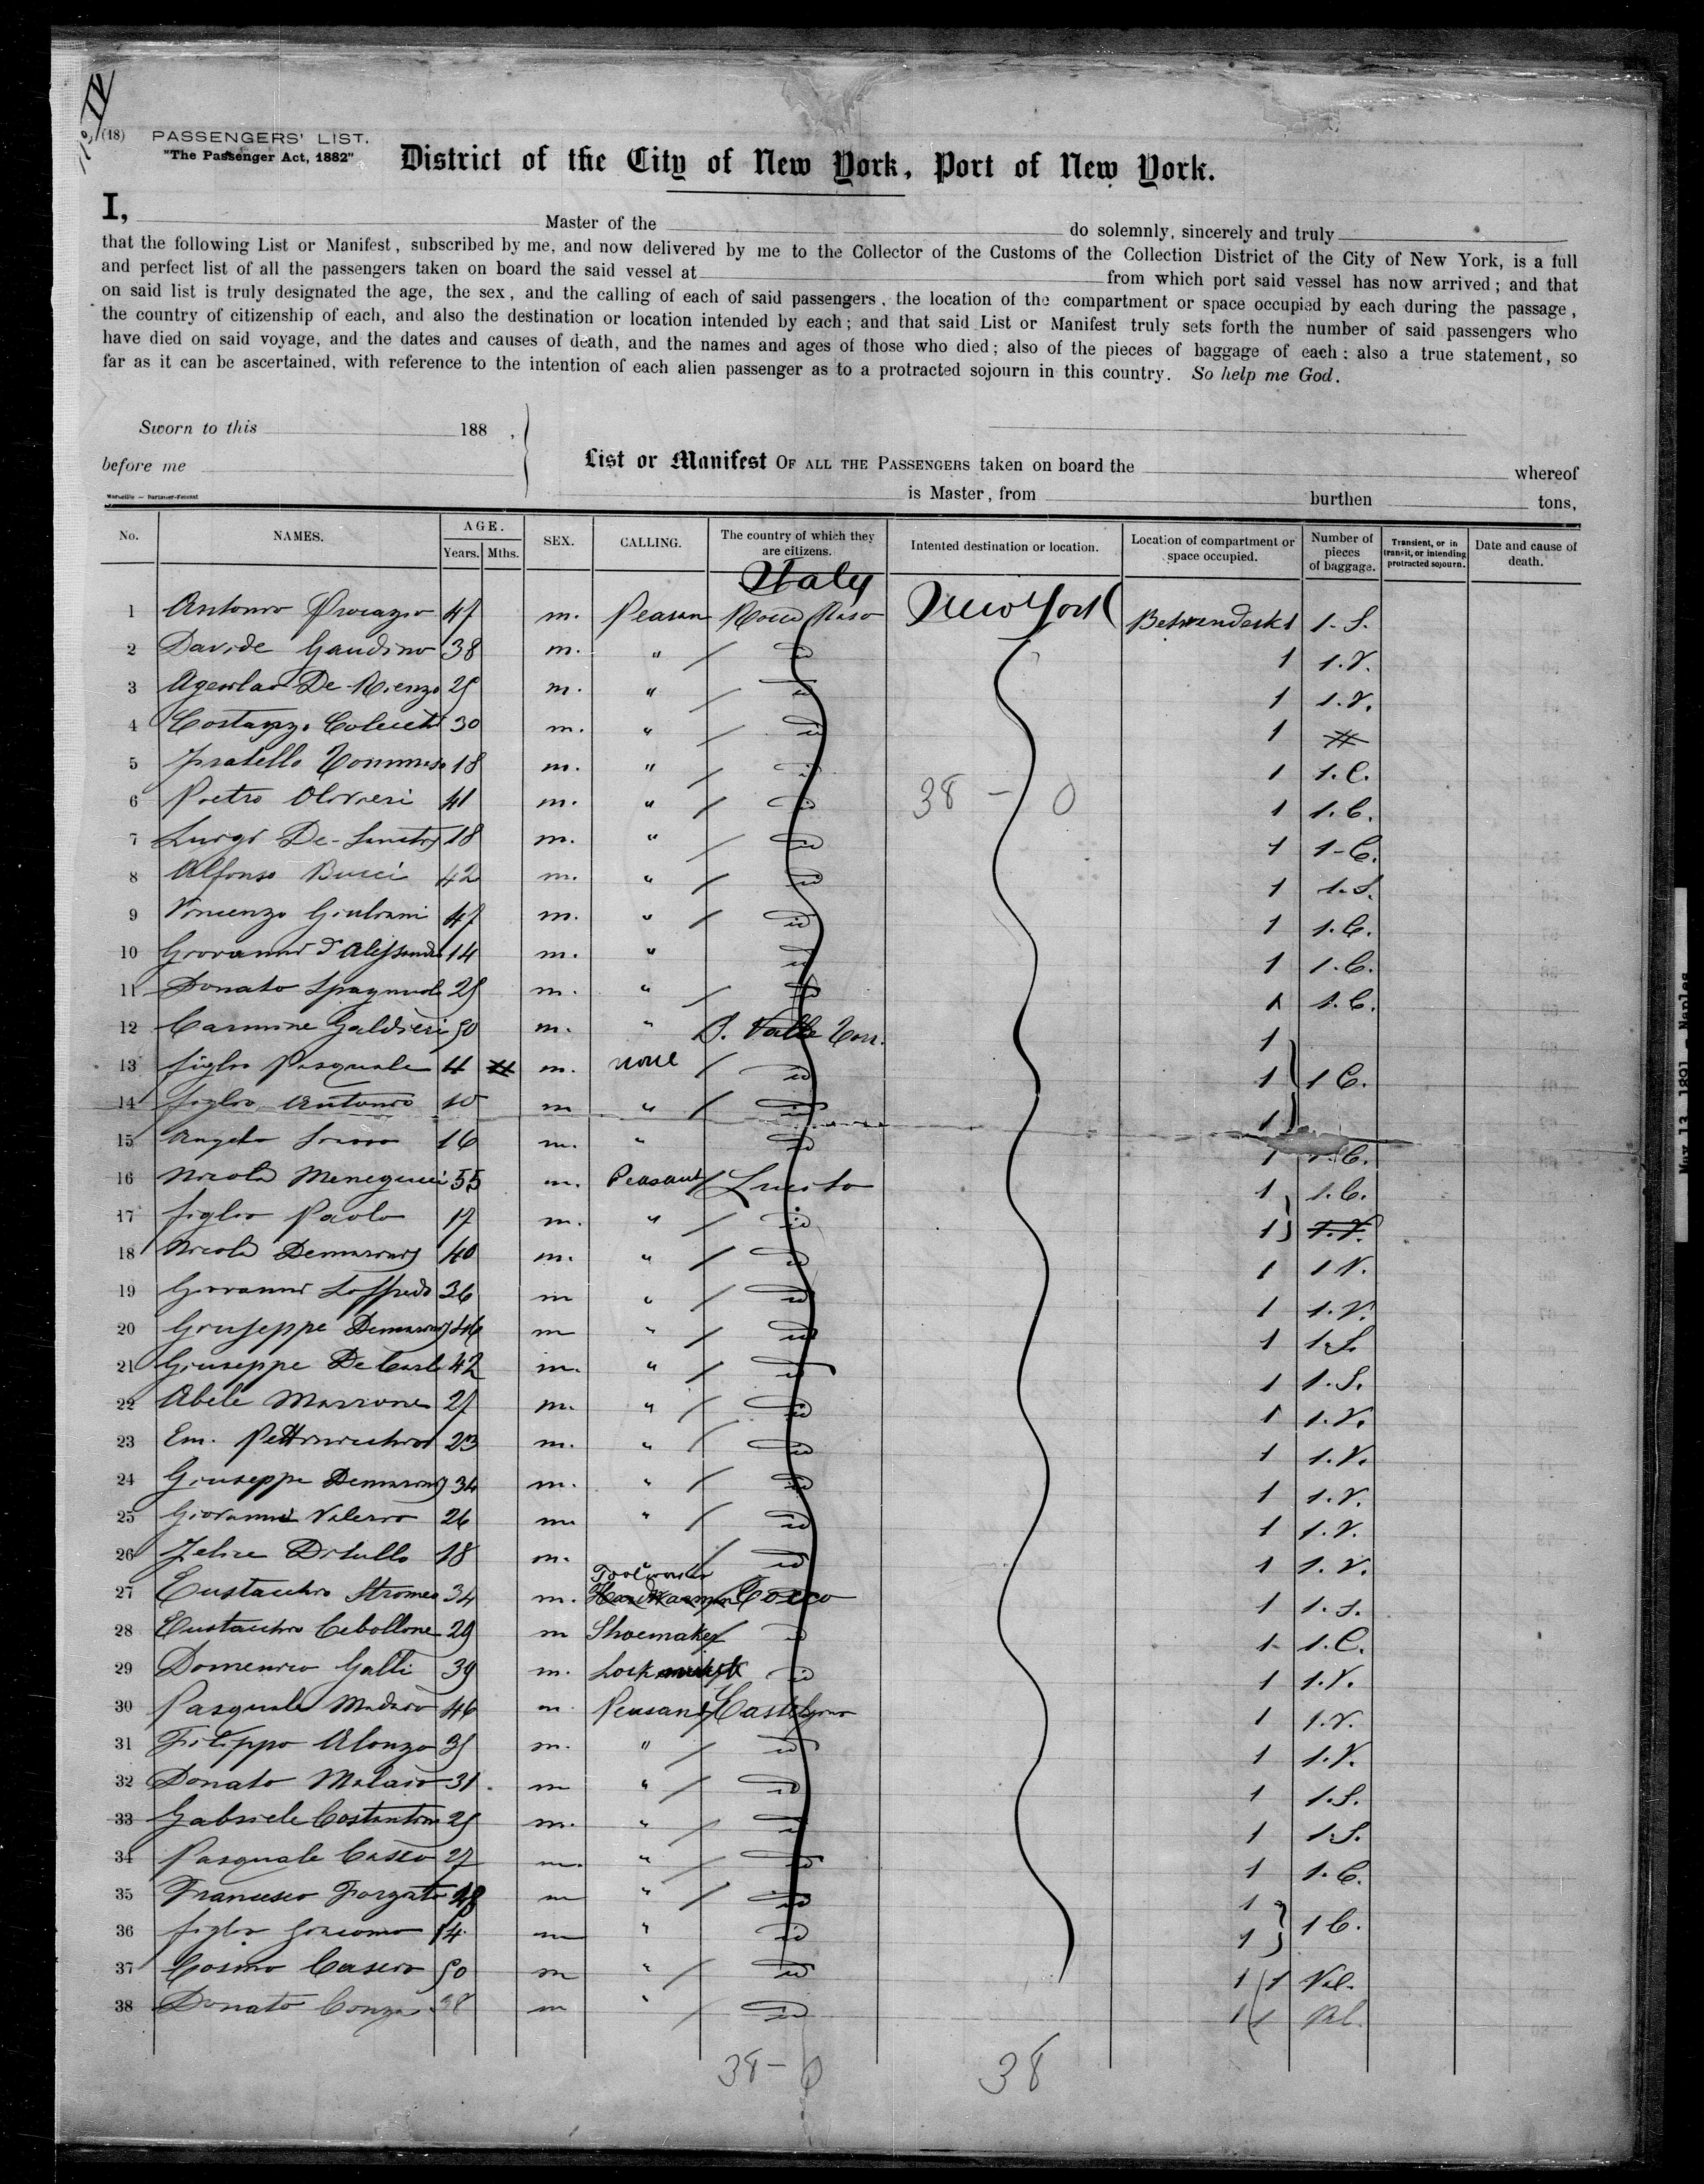 No. IV
(18) PASSENGERS' LIST.
"The Passenger Act, 1882"
District of the City of New York, Port of New York.
I, Master of the do solemnly, sincerely and truly
that the following List or Manifest, subscribed by me, and now delivered by me to the Collector of the Customs of the Collection District of the City of New York, is a full
and perfect list of all the passengers taken on board the said vessel at from which port said vessel has now arrived; and that
on said list is truly designated the age, the sex, and the calling of each of said passengers, the location of the compartment or space occupied by each during the passage,
the country of citizenship of each, and also the destination or location intended by each; and that said List or Manifest truly sets forth the number of said passengers who
have died on said voyage, and the dates and causes of death, and the names and ages of those who died; also of the pieces of baggage of each; also a true statement, so
far as it can be ascertained, with reference to the intention of each alien passenger as to a protracted sojourn in this country. So help me God.
Sworn to this 188 ,
before me
List or Manifest OF ALL THE PASSENGERS taken on board the whereof
is Master, from burthen tons,
No. NAMES. AGE. Years. Mths. SEX. CALLING. The country of which they are citizens. Intented destination or location. Location of compartment or space occupied. Number of pieces of baggage. Transient, or in transit, or intending protracted sojourn. Date and cause of death.
Italy
1 Antonio Procazio 47 m. Peasan Rocca Raso New York Betwendeck 1 1. S.
2 Davide Gaudino 38 m. " id 1 1. V.
3 Agesilao De-Rienzo 25 m. " id 1 1. V.
4 Costanzo 30 m. " id 1
5 Fratello Tommaso 18 m. " id 1 1. C.
6 Pietro Olivieri 41 m. " id 1 1. C.
38 - 0
7 Luigi De-Sanctis 18 m. " id 1 1-C.
8 Alfonso Bucci 42 m. " id 1 1. S.
9 Vincenzo Giuliani 47 m. " id 1 1. C.
10 Giovanni d'Alessandro 14 m. " id 1 1. C.
11 Donato Spagnuolo 25 m. " id 1 1. C.
12 Carmine Galdieri 50 m. " S. Valle 1
13 figlio Pasquale 4 m. none id 1 1 C.
14 figlio Antonio 10 m " id 1
15 Angelo 16 m. " id 1 1. C.
16 Nicola Menegucci 55 m. Peasant 1 1. C.
17 figlio Paolo 17 m. " id 1 1. V.
18 Nicola Demarinis 40 m. " id 1 1 V.
19 Giovanni Loffredo 36 m " id 1 1. V.
20 Giuseppe Demarinis 46 m " id 1 1. S.
21 Giuseppe De Carl 42 m. " id 1 1. S.
22 Abele Marrone 27 m. " id 1 1. V.
23 Em. 23 m. " id 1 1. V.
24 Giuseppe Demarinis 34 m. " id 1 1. V.
25 Giovanni Valerio 26 m. " id 1 1. V.
26 Felice Ditullo 18 m. " id 1 1. V.
27 Eustacchio Stromeo 34 m. Cocco 1 1. S.
28 Eustacchio Cebollone 29 m Shoemaker id 1 1. C.
29 Domenico Galli 39 m. Lock id 1 1. V.
30 Pasquale 46 m Peasant 1 1. V.
31 Filippo Alonzo 35 m. " id 1 1. V.
32 Donato Malaio 31 m " id 1 1. S.
33 Gabriele Costantino 25 m. " id 1 1. S.
34 Pasquale Casco 27 m. " id 1 1. C.
35 Francesco Forgato 48 m " id 1
36 figlio Giacomo 14 m " id 1 1 C.
37 Cosmo Casero 50 m " id 1 1 Val.
38 Donato 38 m " id 1 1 Val.
38 - 0 38
Nov 13, 1891 - Naples